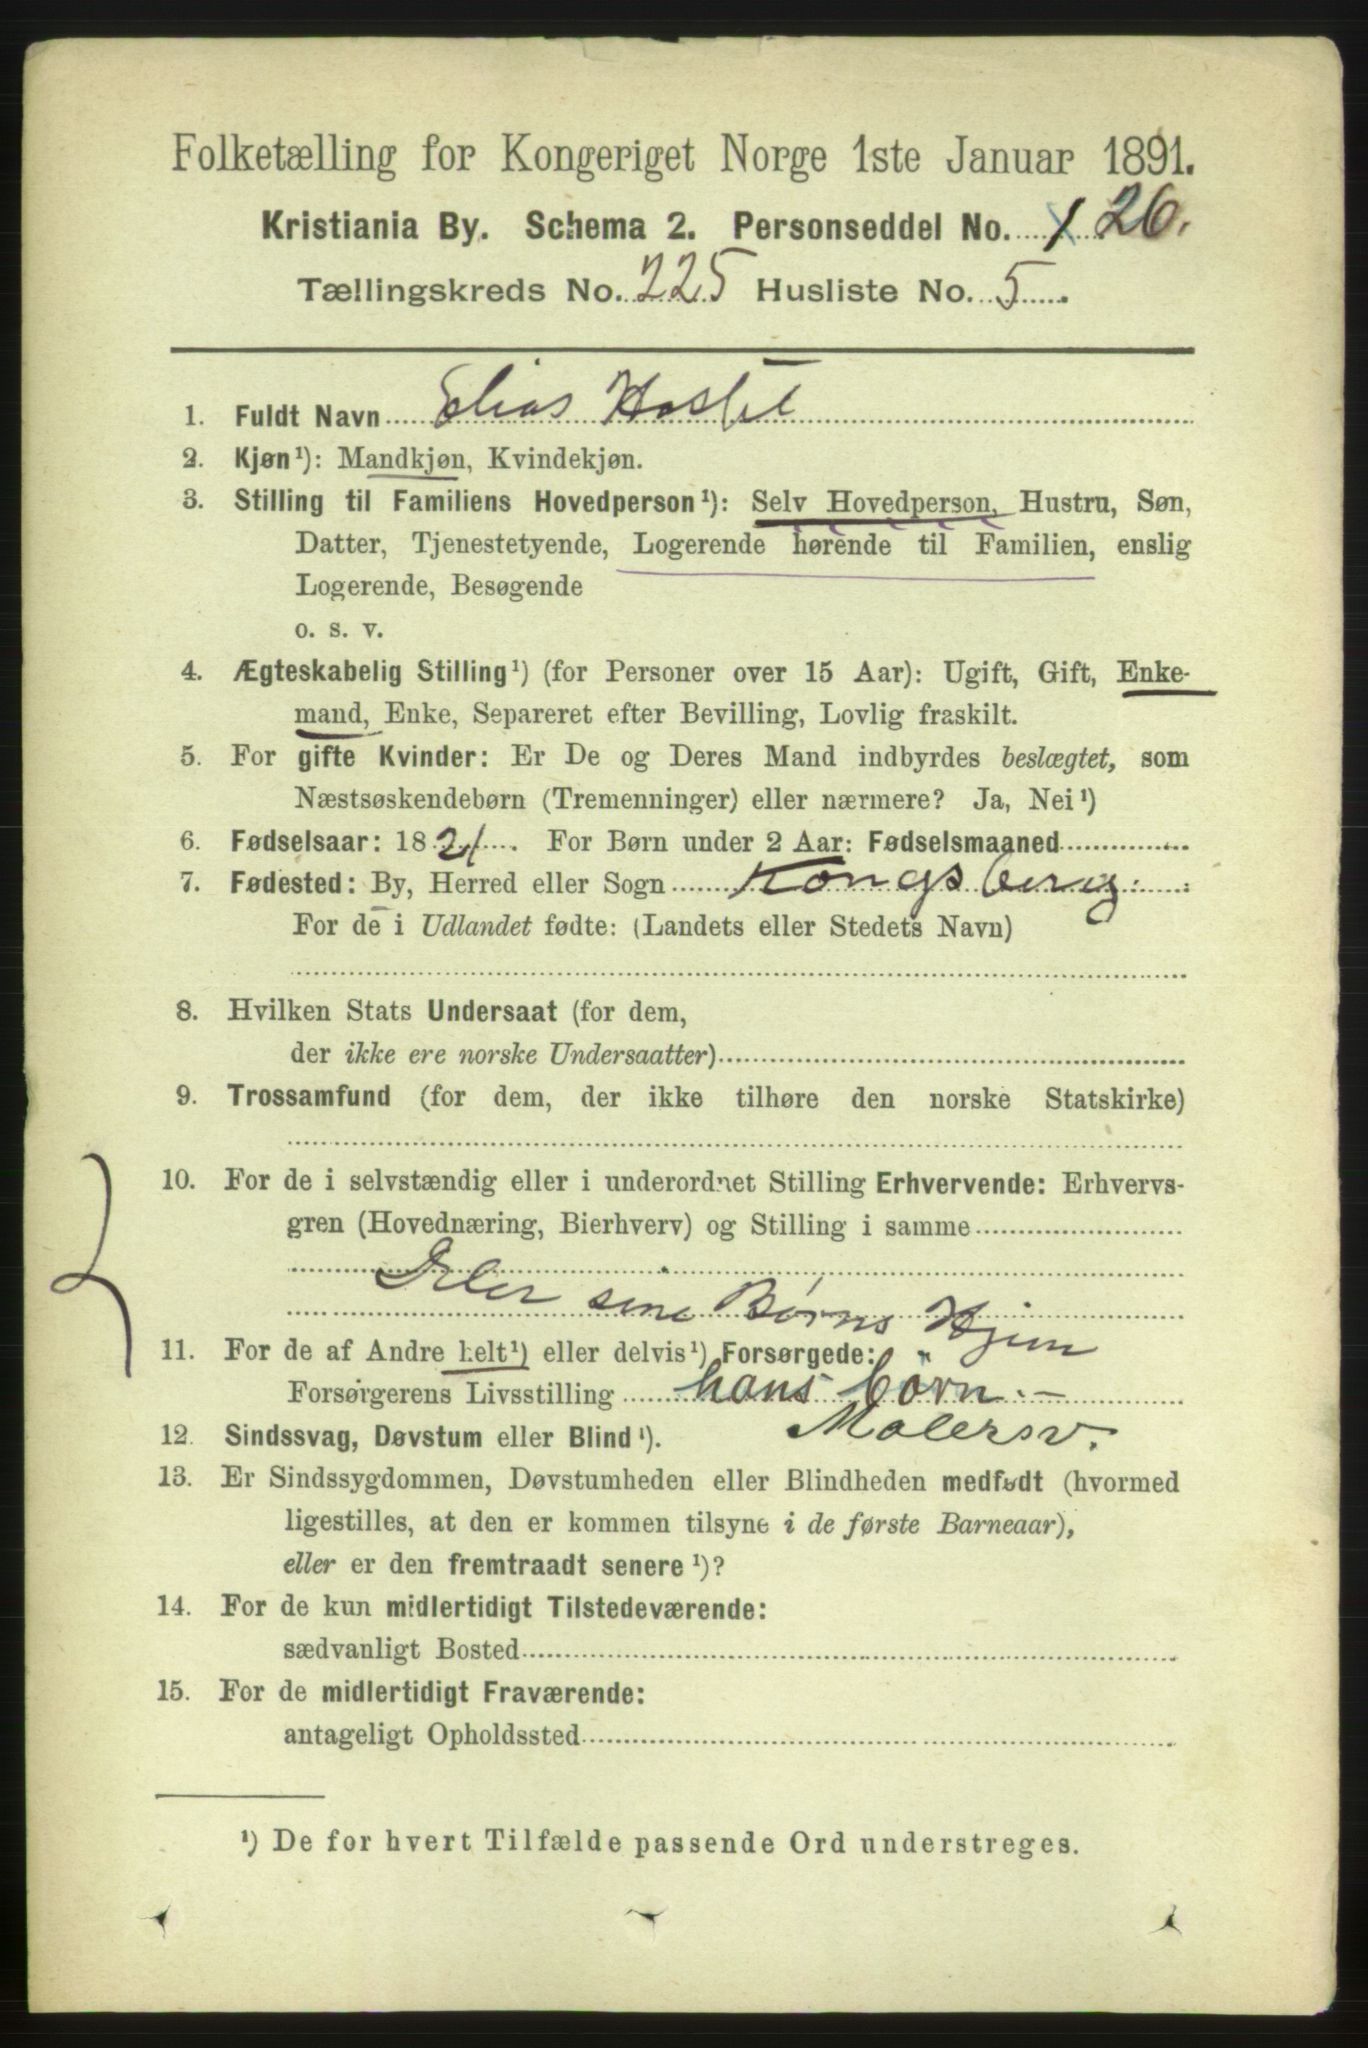 Folketælling for Kongeriget Norge 1ste Januar 1891.
Kristiania By. Schema 2. Personseddel No. 1 26.
Tællingskreds No. 225 Husliste No. 5
1. Fuldt Navn Elias
2. Kjøn¹): Mandkjøn, Kvindekjøn.
3. Stilling til Familiens Hovedperson¹): Selv Hovedperson, Hustru, Søn,
Datter, Tjenestetyende, Logerende hørende til Familien, enslig
Logerende, Besøgende
o. s. v.
4. Ægteskabelig Stilling¹) (for Personer over 15 Aar): Ugift, Gift, Enke-
mand, Enke, Separeret efter Bevilling, Lovlig fraskilt.
5. For gifte Kvinder: Er De og Deres Mand indbyrdes beslægtet, som
Næstsøskendebørn (Tremenninger) eller nærmere? Ja, Nei¹)
6. Fødselsaar: 1821. For Børn under 2 Aar: Fødselsmaaned
7. Fødested: By, Herred eller Sogn Kongsberg
For de i Udlandet fødte: (Landets eller Stedets Navn)
8. Hvilken Stats Undersaat (for dem,
der ikke ere norske Undersaatter)
9. Trossamfund (for dem, der ikke tilhøre den norske Statskirke)
10. For de i selvstændig eller i underordnet Stilling Erhvervende: Erhvervs-
gren (Hovednæring, Bierhverv) og Stilling i samme
sine Børns Hjem
11. For de af Andre helt¹) eller delvis¹) Forsørgede:
Forsørgerens Livsstilling hans börn. —
Malersv.
12. Sindssvag, Døvstum eller Blind¹).
13. Er Sindssygdommen, Døvstumheden eller Blindheden medfødt (hvormed
ligestilles, at den er kommen tilsyne i de første Barneaar),
eller er den fremtraadt senere¹)?
14. For de kun midlertidigt Tilstedeværende:
sædvanligt Bosted
15. For de midlertidigt Fraværende:
antageligt Opholdssted
¹) De for hvert Tilfælde passende Ord understreges.